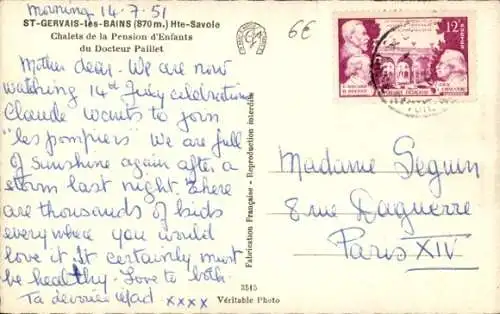 Morning 14.7.51
ST-GERVAIS-les-BAINS (870 m.) Hte-Savoie
Chalets de la Pension d'Enfants
du Docteur Paillet
6€
12F
Mother dear - We are now
watching 14th July celebrations
Claude wants to join
"les pompiers" We are full
of sunshine again after a
storm last night. There
are thousands of kids
everywhere you would
love it. It certainly must
be healthy. Love to both
Ta dévouée Mad xxxx
Fabrication Française - Reproduction interdite
Madame Seguin
8 rue Daguerre
Paris XIV
3515
Véritable Photo